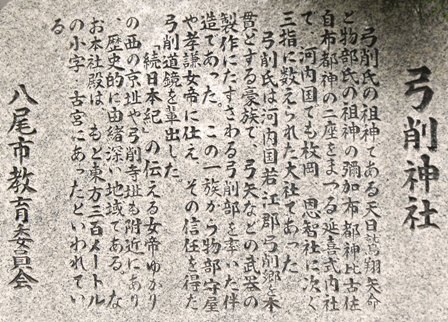 弓削神社
弓削氏の祖神である天日鷲翔矢命
と物部氏の祖神の彌加布都神比古佐
自布都神の二座をまつる延喜式内社
で、河内国でも枚岡、恩智社に次ぐ
三指に数えられた大社であった。
弓削氏は河内国若江郡弓削郷を本
貫とする豪族で、弓矢などの武器の
製作にたずさわる弓削部を率いた伴
造であった。この一族から物部守屋
や孝謙女帝に仕え、その信任を得た
弓削道鏡を輩出した。
「続日本紀」の伝える女帝ゆかり
の西の京址や弓削寺址も附近にあり
、歴史的に由緒深い地域である。な
お本社殿は、もと東方三百メートル
の小字・古宮にあったといわれてい
る。
八尾市教育委員会